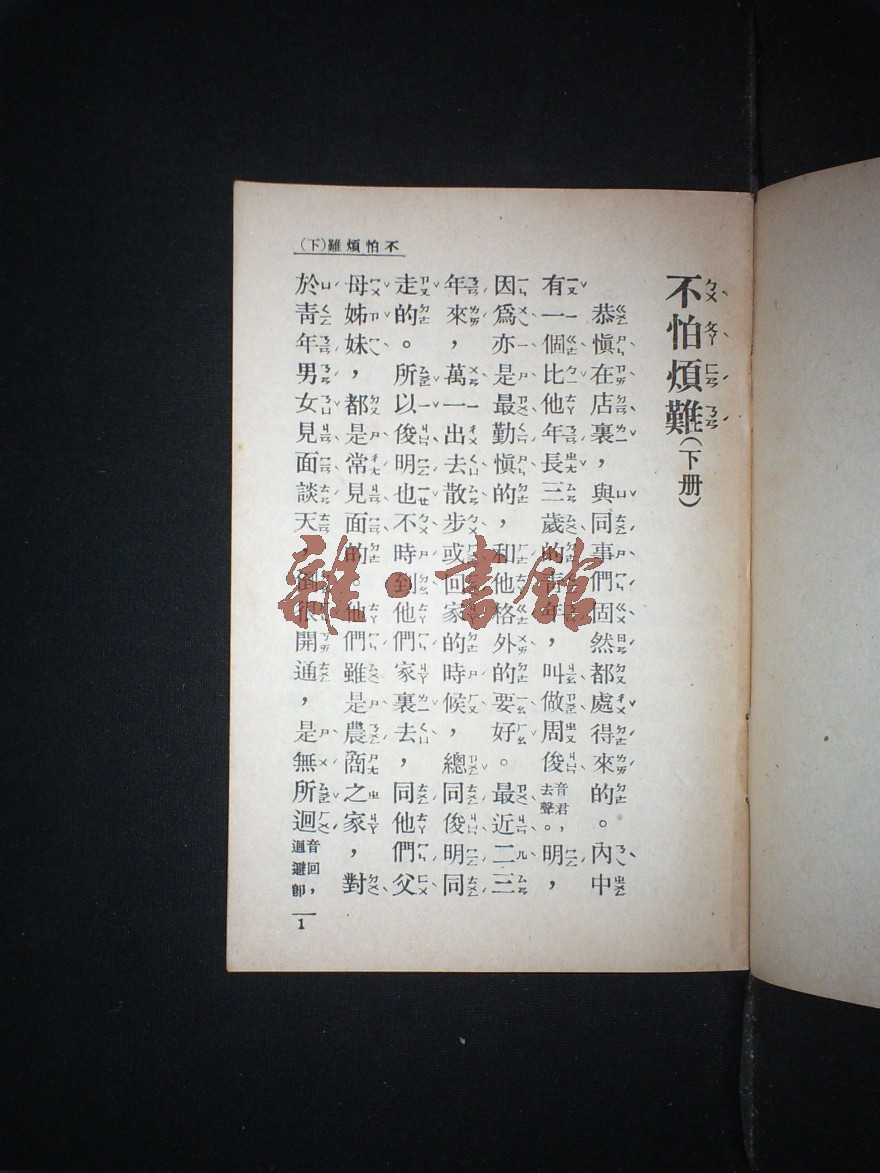 不怕煩難(下)
不怕煩難(下册)
恭愼在店裏，與同事們固然都處得來的。內中
有一個比他年長三歲的靑年，叫做周俊音君，去聲。明，
因爲亦是最勤愼的，和他格外的要好。最近二三
年來，萬一出去散步或回家的時候，總同俊明同
走的。所以俊明也不時到他們家裏去，同他們父
母姊妹，都是常見面的。他們雖是農商之家，對
於靑年男女見面談天，倒很開通，是無所迴音回，迴避卽
1
雜·書館